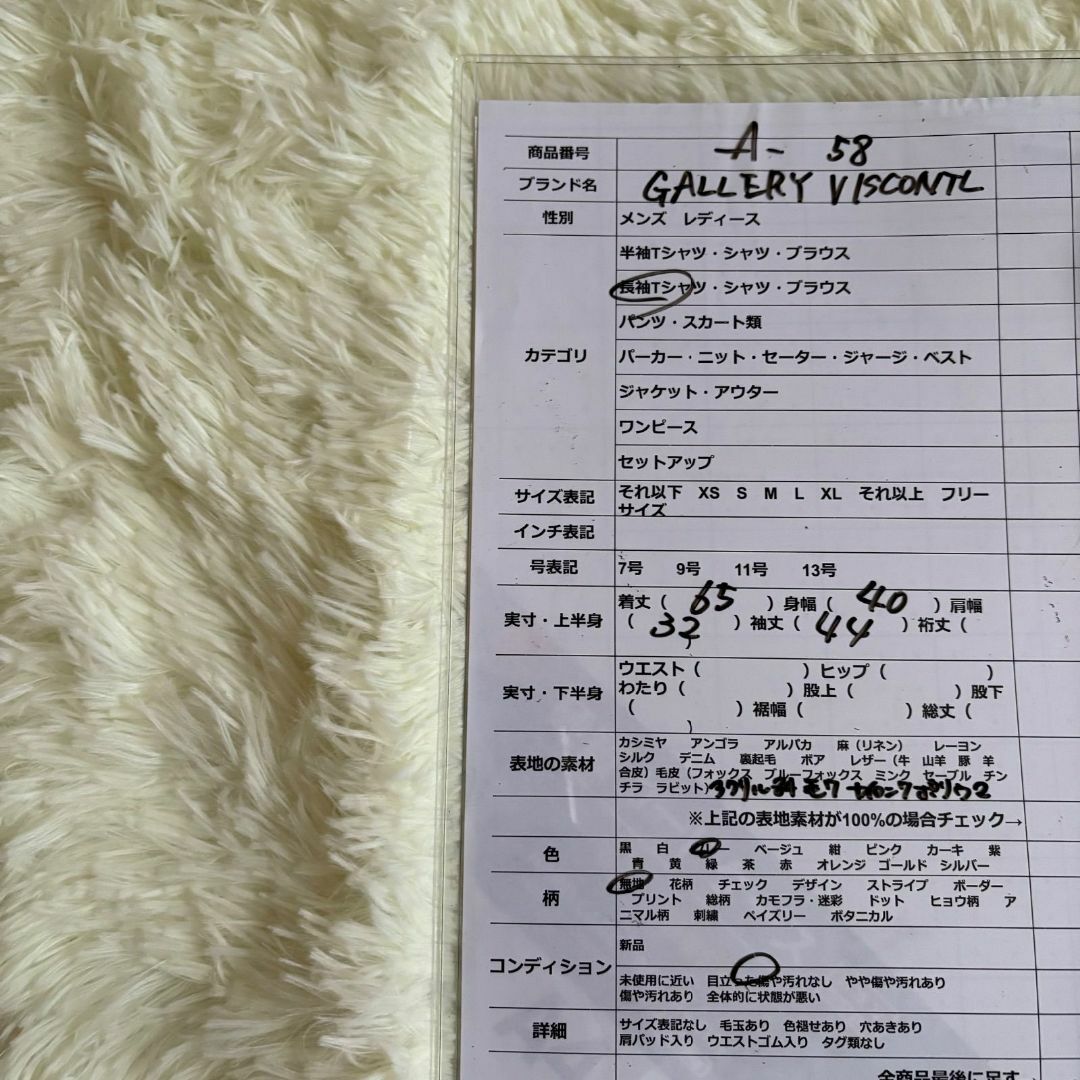 商品番号 A- 58
ブランド名 GALLERY VISCONTL
性別 メンズ レディース
半袖Tシャツ・シャツ・ブラウス
長袖Tシャツ・シャツ・ブラウス
パンツ・スカート類
カテゴリ パーカー・ニット・セーター・ジャージ・ベスト
ジャケット・アウター
ワンピース
セットアップ
サイズ表記 それ以下 XS S M L XL それ以上 フリー
サイズ
インチ表記
号表記 7号 9号 11号 13号
着丈( 65 )身幅( 40 )肩幅
実寸・上半身 ( 32 )袖丈( 44 )裄丈(
)
ウエスト( )ヒップ( )
実寸・下半身 わたり( )股上( )股下
( )裾幅( )総丈(
)
カシミヤ アンゴラ アルパカ 麻(リネン) レーヨン
表地の素材 シルク デニム 裏起毛 ボア レザー(牛 山羊 豚 羊
合皮)毛皮(フォックス ブルーフォックス ミンク セーブル チン
チラ ラビット)
※上記の表地素材が100%の場合チェック→
色 黒 白 ベージュ 紺 ピンク カーキ 紫
青 黄 緑 茶 赤 オレンジ ゴールド シルバー
無地 花柄 チェック デザイン ストライプ ボーダー
柄 プリント 総柄 カモフラ・迷彩 ドット ヒョウ柄 ア
ニマル柄 刺繍 ペイズリー ボタニカル
新品
コンディション
未使用に近い 目立った傷や汚れなし やや傷や汚れあり
傷や汚れあり 全体的に状態が悪い
詳細 サイズ表記なし 毛玉あり 色褪せあり 穴あきあり
肩パッド入り ウエストゴム入り タグ類なし
全商品最後に足す